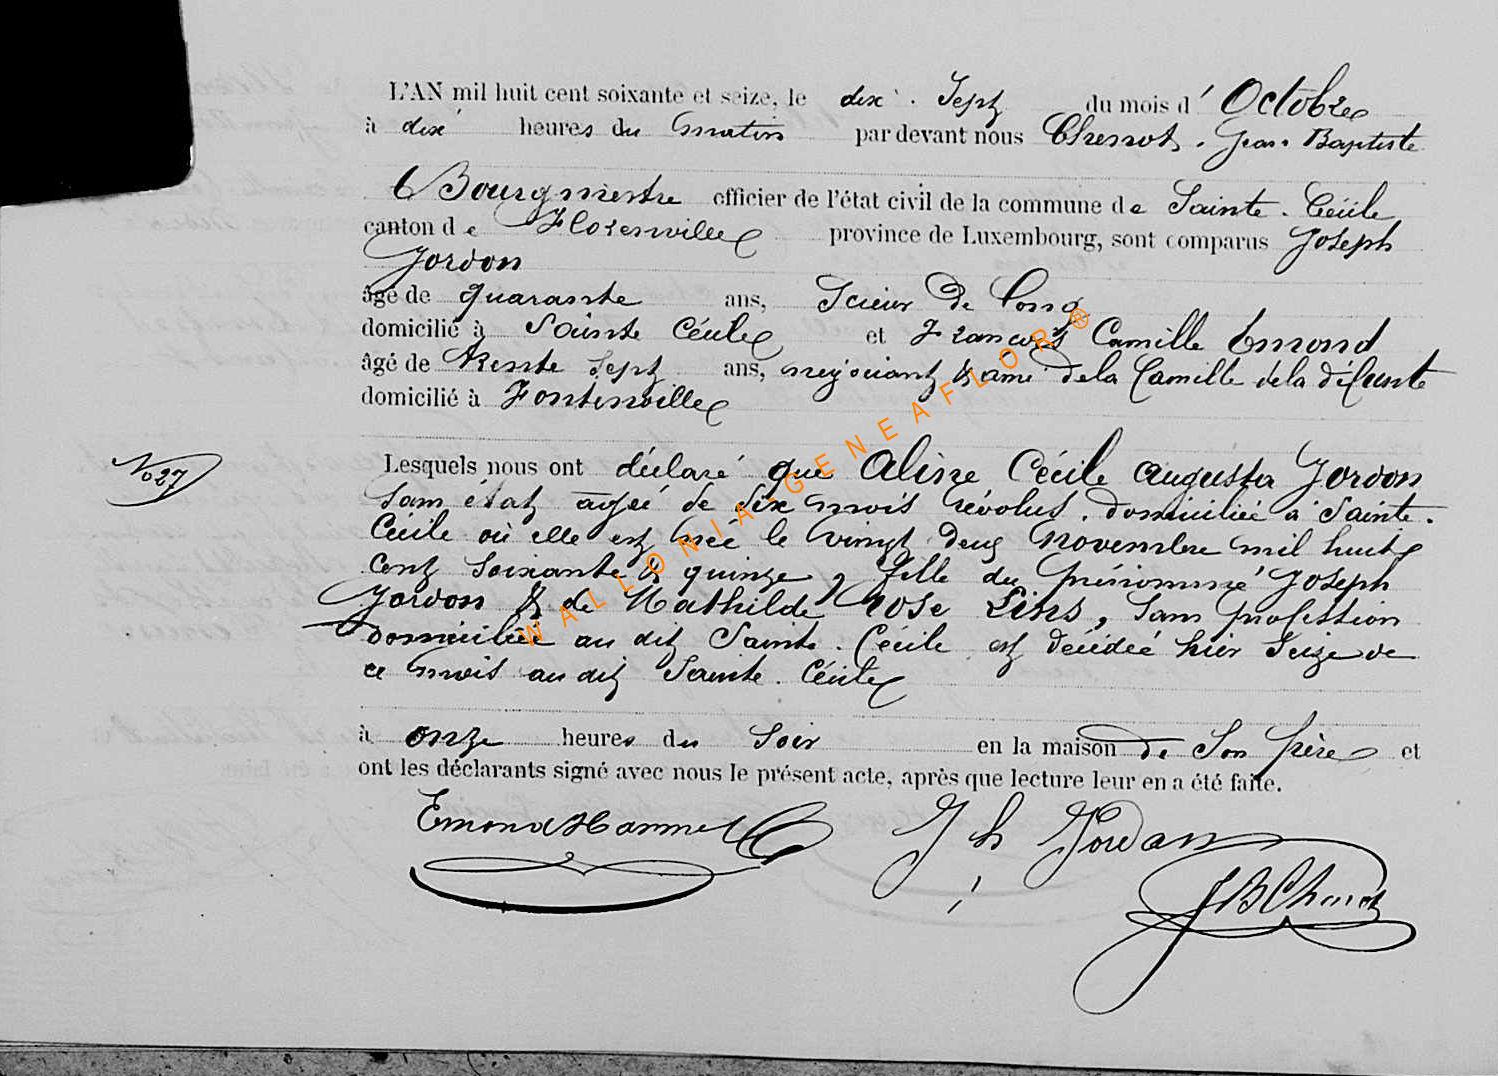 L'AN mil huit cent soixante et seize, le dix-sept du mois d'Octobre
à dix heures du matin par devant nous Jean Baptiste
Bourgmestre officier de l'état civil de la commune de Sainte-Cécile
canton de Florenville province de Luxembourg, sont comparus Joseph
Jordon
âgé de quarante ans, Scieur de long
domicilié à Sainte Cécile et François Camille Emond
âgé de trente sept ans, négociant & ami de la famille de la défunte
domicilié à Fontenoille
No 27
Lesquels nous ont déclaré que Aline Cécile Augusta Jordon
sans état agée de dix mois révolus, domiciliée à Sainte-
Cécile où elle est née le vingt deux Novembre mil huit
cent soixante & quinze, fille du prénommé Joseph
Jordon & de Mathilde Rose Lins, sans profession
domiciliée au dit Sainte-Cécile est décédée hier seize de
ce mois au dit Sainte-Cécile
à onze heures du soir en la maison de son père et
ont les déclarants signé avec nous le présent acte, après que lecture leur en a été faite.
Emond Jh Jordan
WALLONIA-GENEAFLOR®